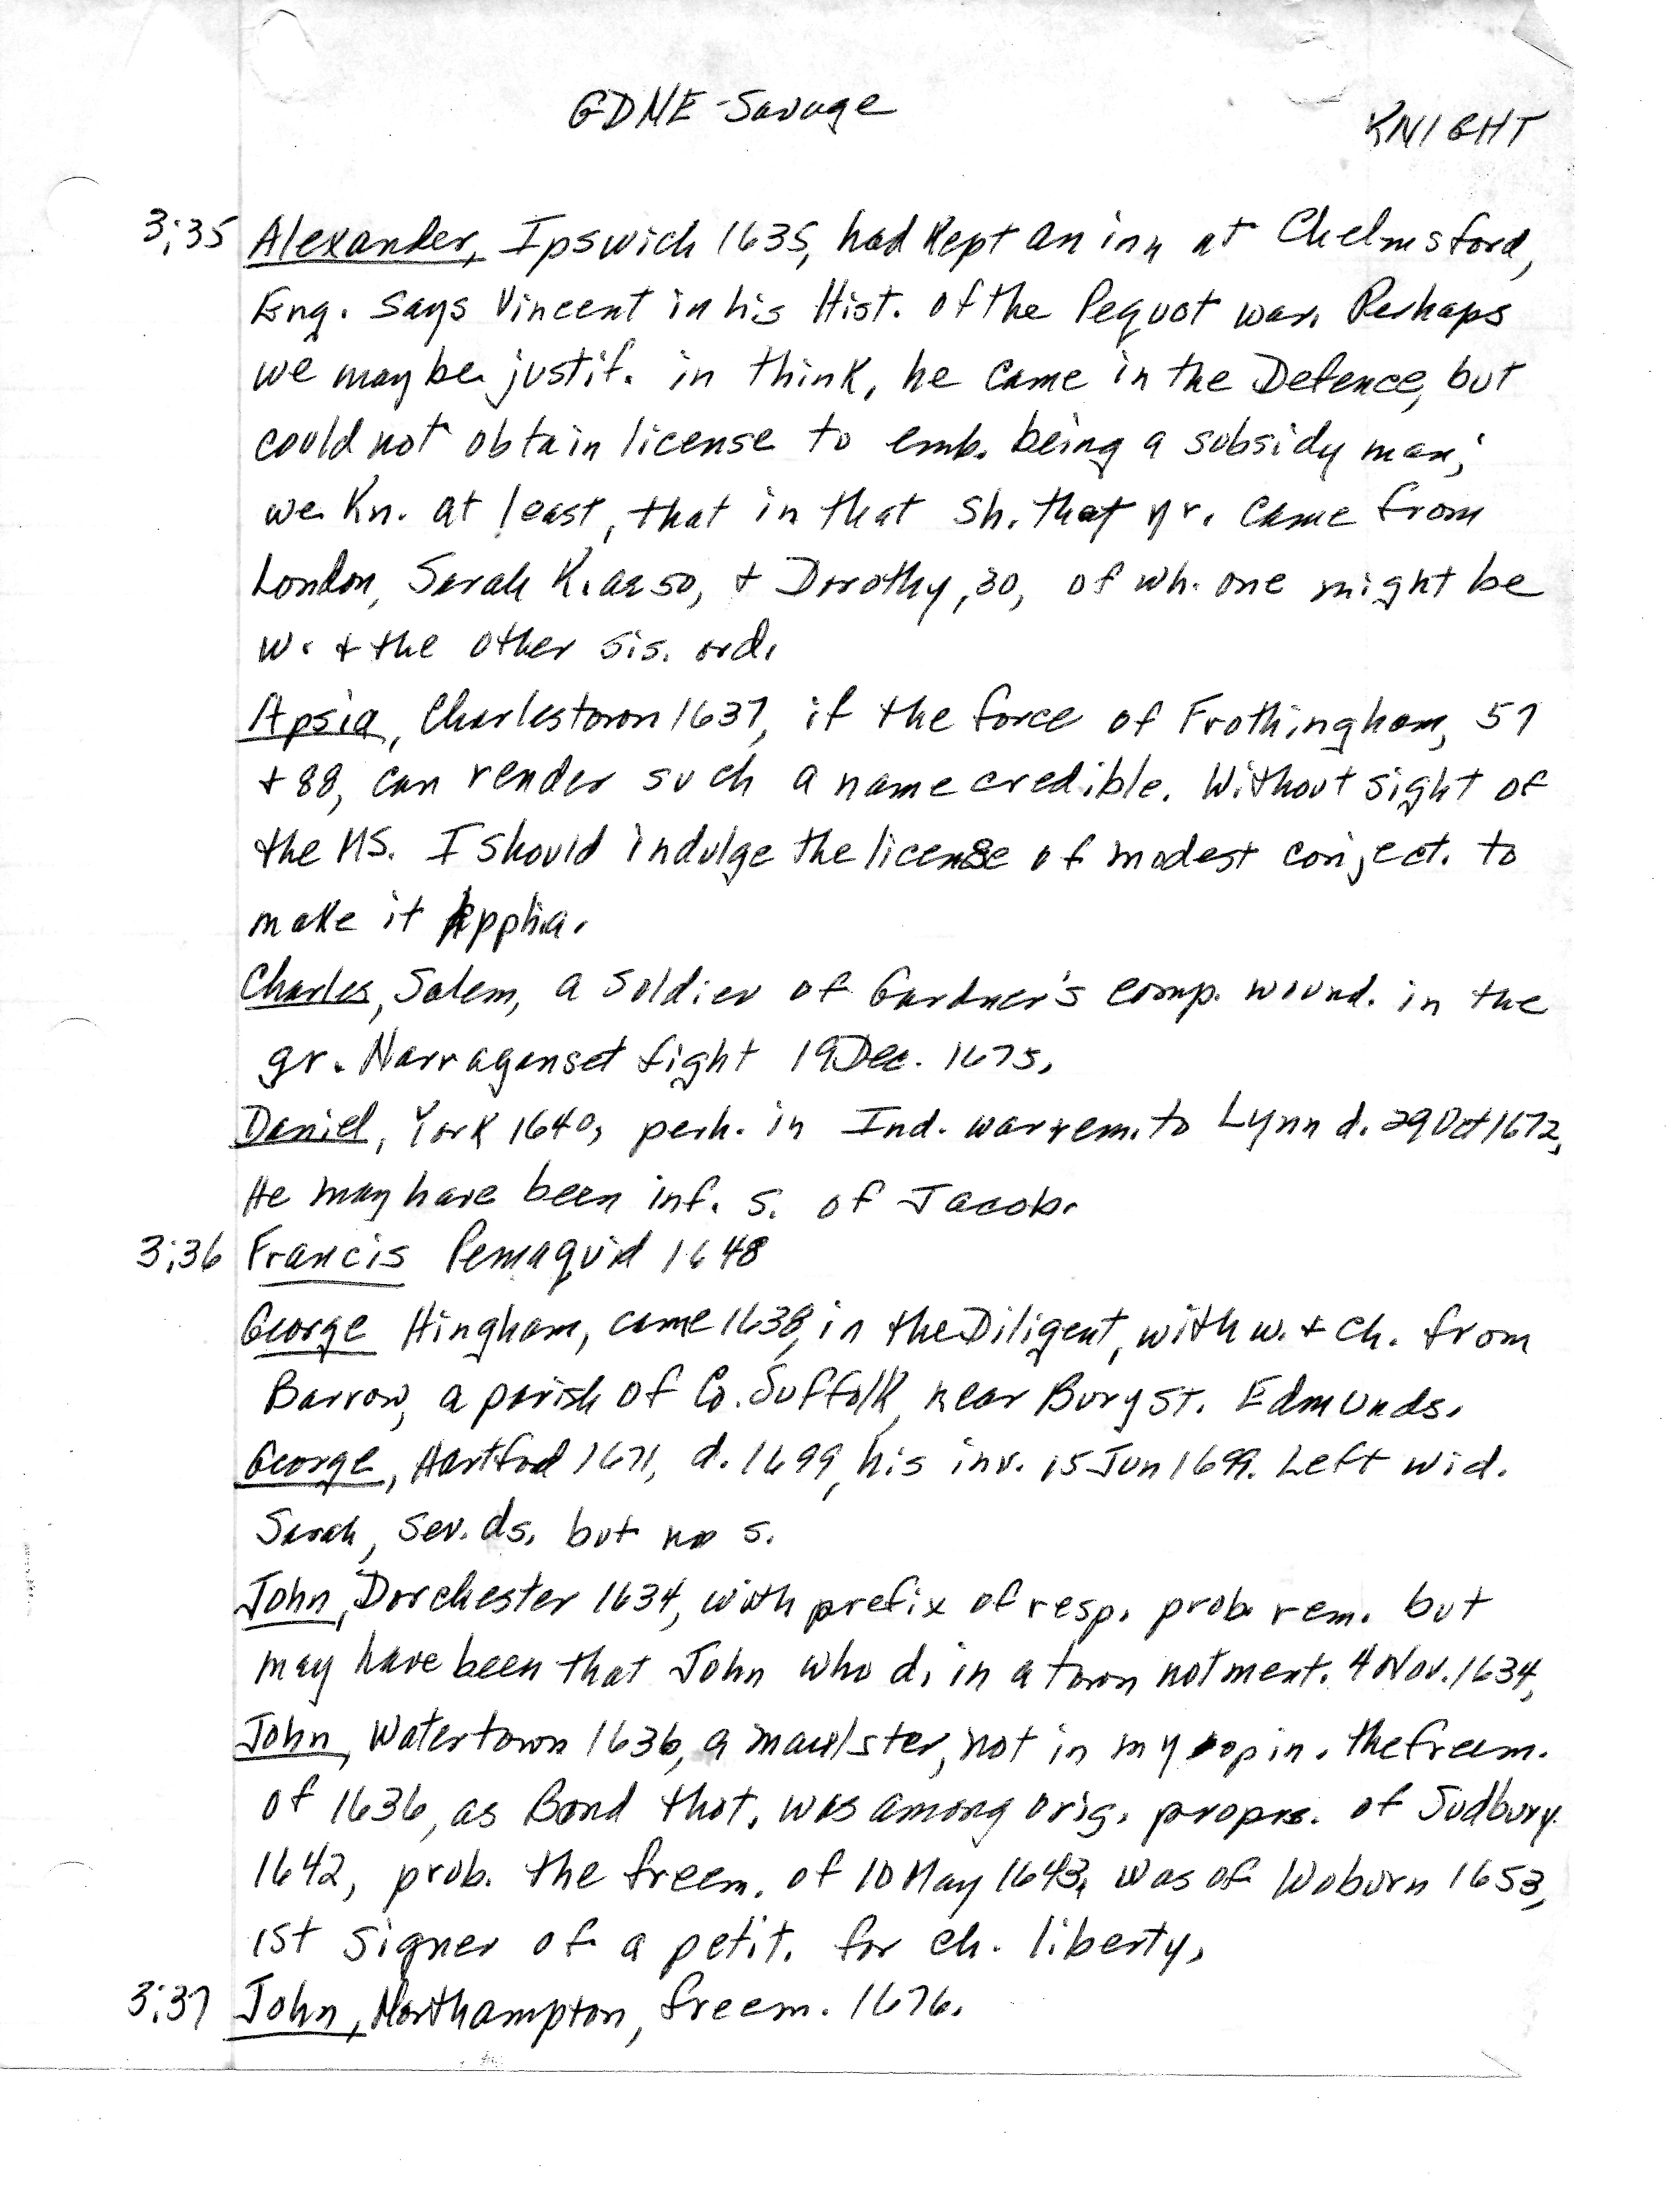 GDNE - Savage
KNIGHT
3:35 Alexander, Ipswich 1635, had kept an inn at Chelmsford,
Eng. says Vincent in his Hist. of the Pequot war. Perhaps
we may be justif. in think, he came in the Defence, but
could not obtain license to emb. being a subsidy man;
we kn. at least, that in that sh. that yr. came from
London, Sarah K. ae 50, + Dorothy, 30, of wh. one might be
w. + the other sis. or d.
Apsia, Charlestown 1637, if the force of Frothingham, 57
+ 88, can render such a name credible. Without sight of
the MS. I should indulge the license of modest conject. to
make it Apphia.
Charles, Salem, a soldier of Gardner's comp. wound. in the
gr. Narraganset fight 19 Dec. 1675.
Daniel, York 1640, perh. in Ind. war rem. to Lynn d. 29 Oct 1672,
He may have been inf. s. of Jacob.
3:36 Francis Pemaquid 1648
George Hingham, came 1638, in the Diligent, with w. + ch. from
Barrow, a parish of Co. Suffolk, near Bury St. Edmunds.
George, Hartfod 1671, d. 1699, his inv. 15 Jun 1699. Left wid.
Sarah, sev. ds. but no s.
John, Dorchester 1634, with prefix of resp. prob. rem. but
may have been that John who d. in a town not ment. 4 Nov. 1634,
John, Watertown 1636, a maulster, not in my opin. the freem.
of 1636, as Bond thot, was among orig. proprs. of Sudbury.
1642, prob. the freem. of 10 May 1643, was of Woburn 1653,
1st signer of a petit. for ch. liberty,
3:37 John, Northampton, freem. 1676.